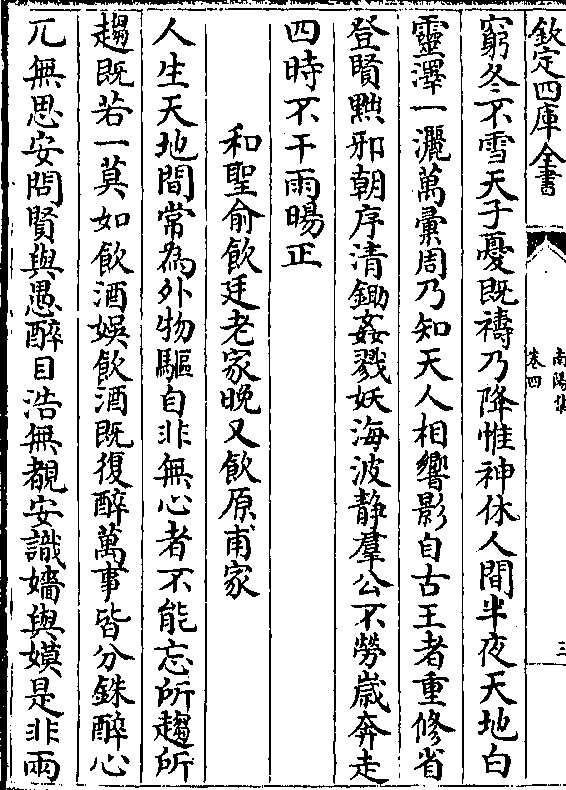 欽定四庫全書
南陽集
卷四
三
窮冬不雪天子憂既禱乃降惟神休人間半夜天地白
靈澤一灑萬彚周乃知天人相響影自古王者重修省
登賢黜邪朝序清鋤姦戮妖海波静羣公不勞嵗奔走
四時不干雨暘正
和聖俞飲廷老家晚又飲原甫家
人生天地間常為外物驅自非無心者不能忘所趨所
趨既若一莫如飲酒娯飲酒既復醉萬事皆分銖醉心
兀無思安問賢與愚醉目浩無覩安識嬙與嫫是非兩